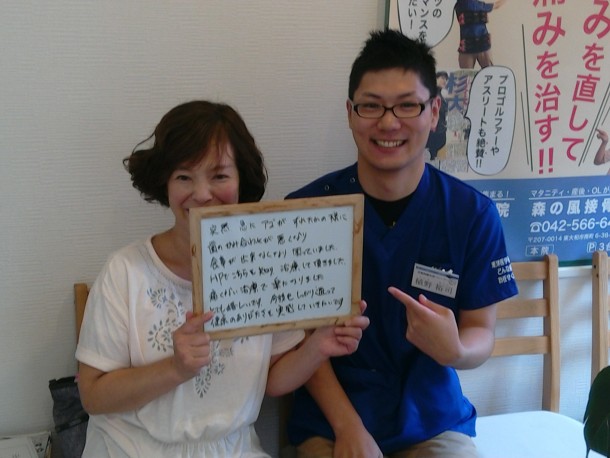 突然 急に アゴが ずれたかの様に
痛みかみ合わせが 悪くなり
食事が出来なくなり 困っていました。
HPでこちらを知り 治療して頂きました
痛くない治療で 楽になりました
とても嬉しいです。今後も しっかり通って
健康のありがたさを 実感していきたいです
マンスを
たい!
プロゴルファーや
アスリートも
絶賛!
みを直して
痛みを治す!!
マタニティ・産後・OLが
院
森の風接骨
☎042-566-6
〒207-0014
本院
P3台
植野 裕司